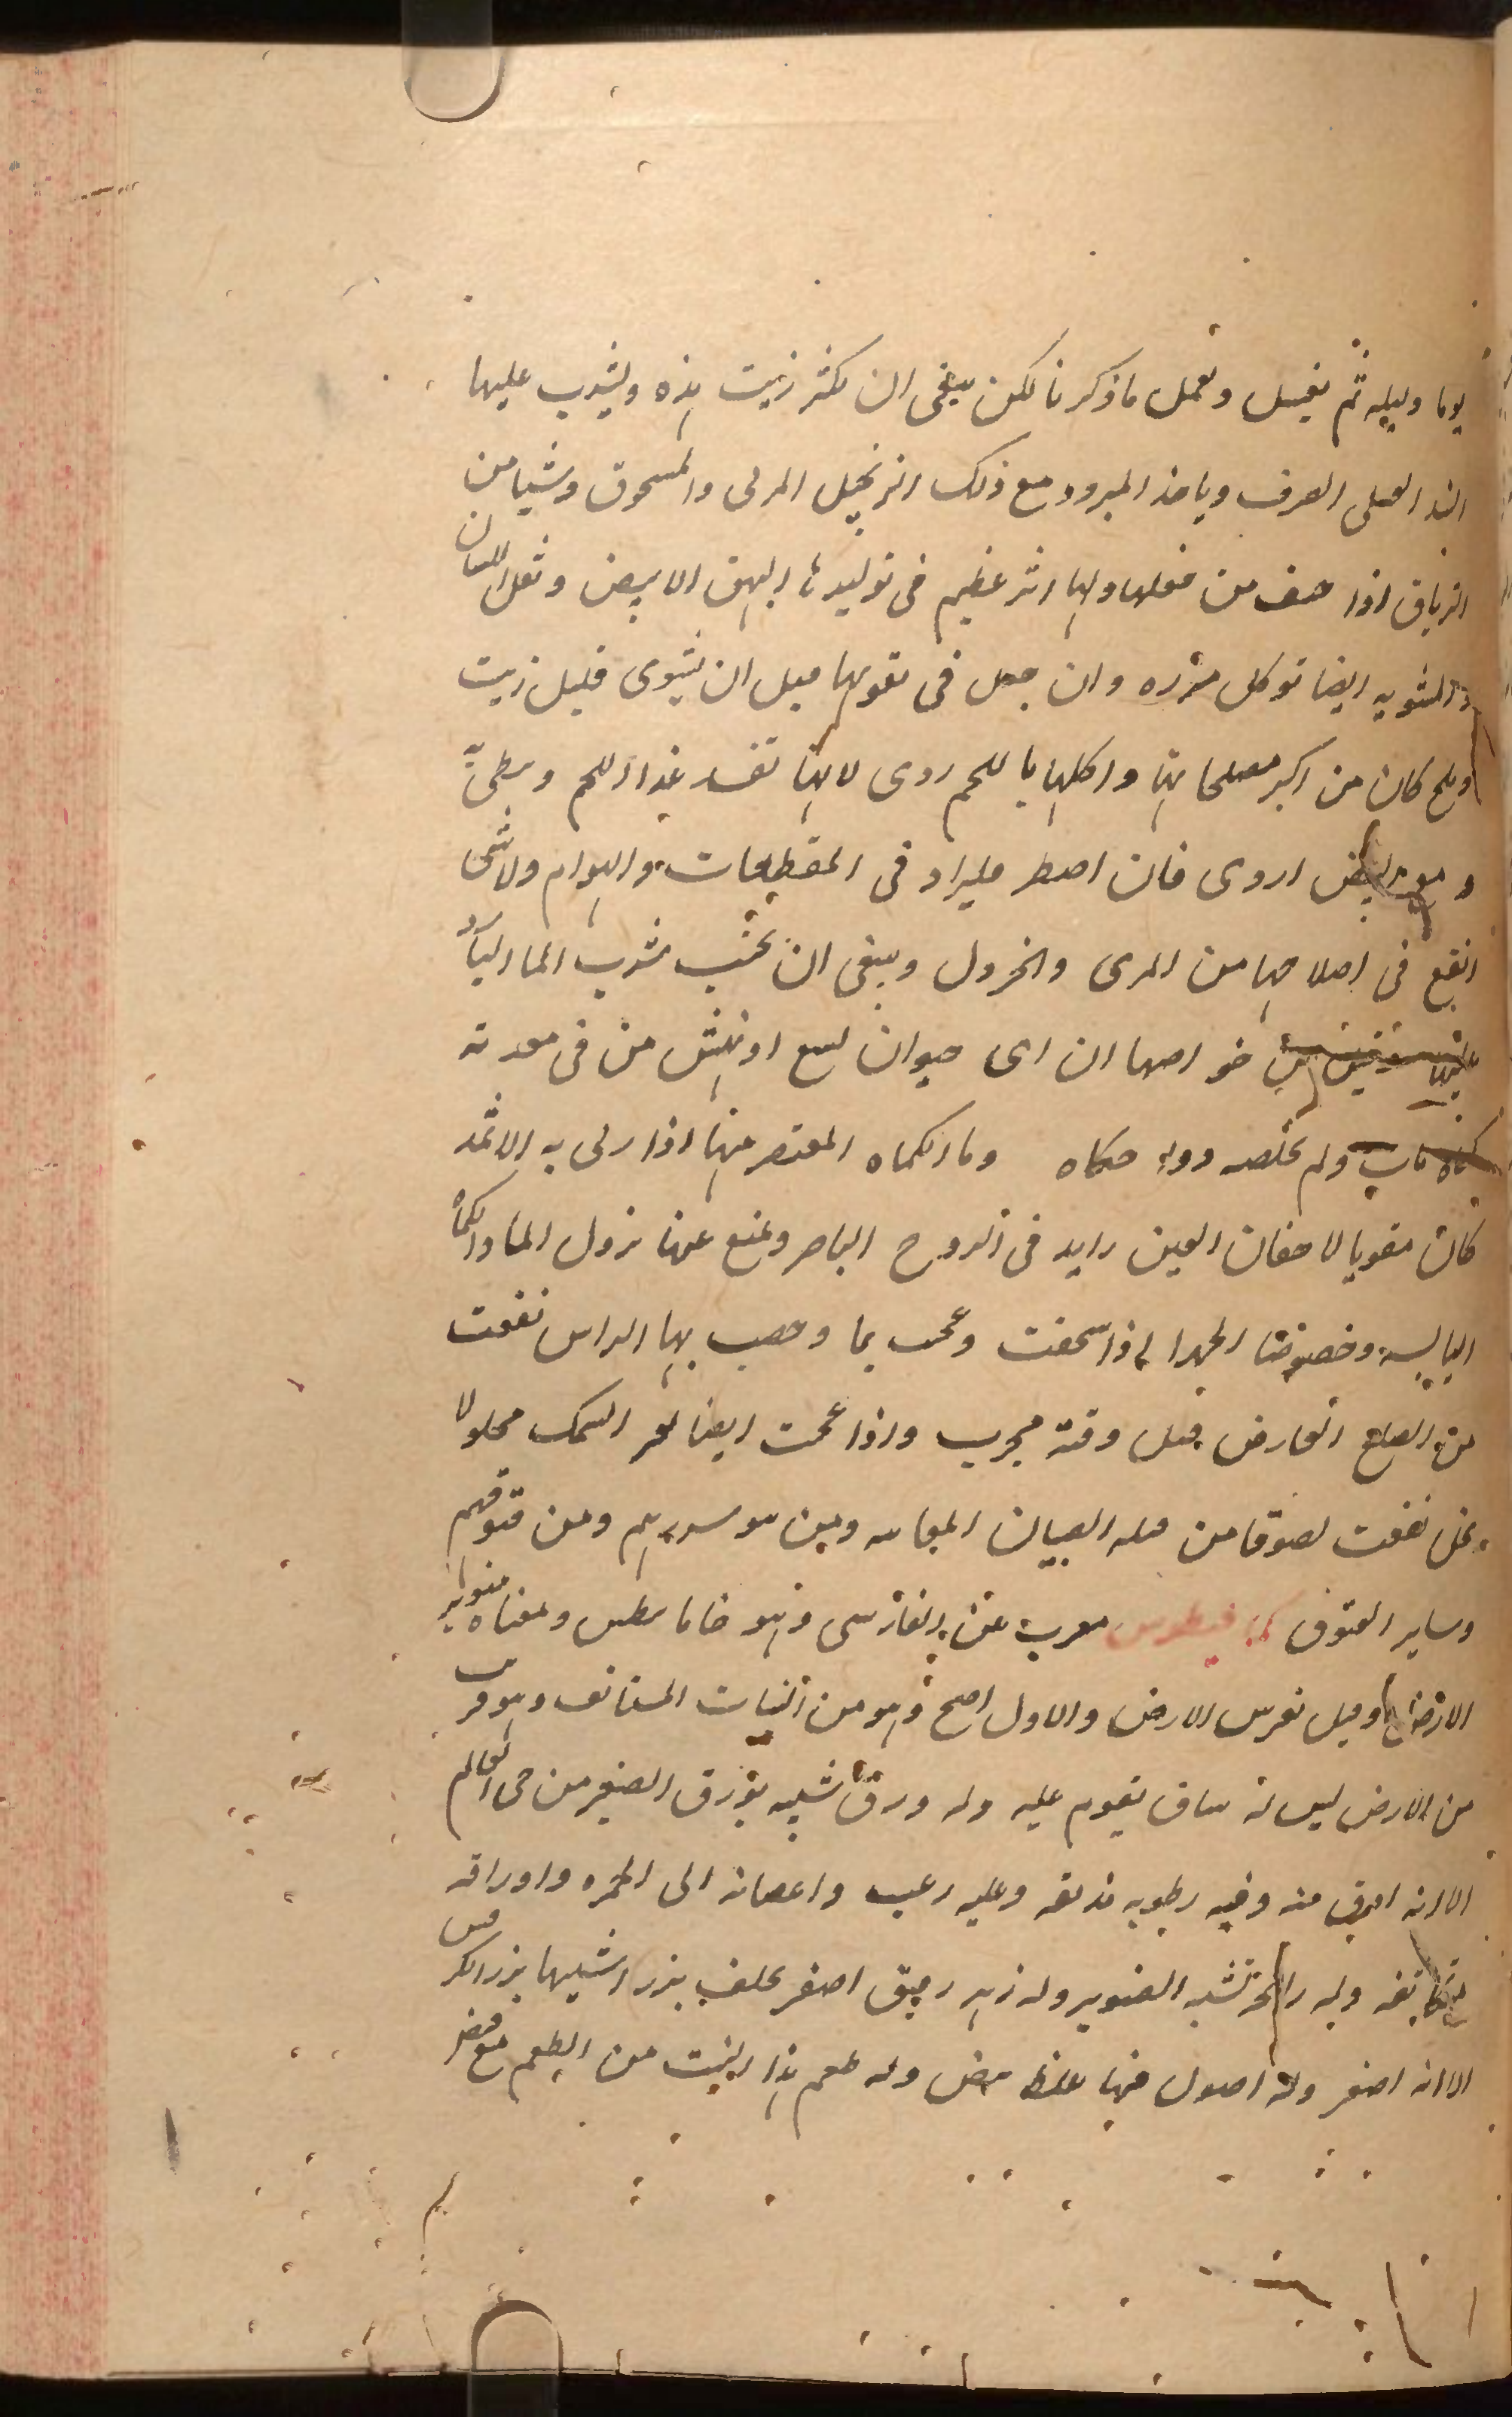 يوما وليله ثم يغسل وتعمل ما ذكرنا لكن ينبغى ان يكثر زيت هذه ويشرب عليها
النبيد العسلى الصرف وياخذ المبرود مع ذلك الزنجبيل المربى والمسحوق وشيا من
الترياق اذا خيف من فعلها ولها اثر عظيم فى توليدها البهق الابيض وثقل اللسان
والمشويه ايضا توكل مبزره وان جعل فى تقويرها قبل ان يشوى قليل زيت
وملح كان من اكبر مصلحاتها واكلها باللحم ردى لانها تفسد غذا اللحم وبطئ
ومع البيض اردى فان اضطر فليزاد فى المقطعات والهوام ولا شى
انفع فى اصلاحها من المرى والخردل وينبغى ان يجتنب شرب الما البارد
خواصها ان اى حيوان لسع او نهش من فى معدته
ولم يخلصه دواء حكاه وما الكماه المعتصر منها اذا ربى به الاثمد
كان مقويا لاجفان العين زايد فى الروح الباصر ويمنع عنها نزول الما والكماه
اليابسه وخصوصا الجمرا اذا سحقت وعجنت بما وخضب بها الراس نفعت
من الصلع العارض قبل وقته مجرب واذا عجنت ايضا بغر السمك محلولا
بخل نفعت لصوقا من قيله الصبيان المعائيه ومن نتو سررهم ومن فتوقهم
وساير الفتوق كمافيطوس معرب عن الفارسى وهو خاما بيطس ومعناه صنوبر
الارض وقيل نفرس الارض والاول اصح وهو من النبات المستانف وهو قريب
من الارض ليس له ساق يقوم عليه وله ورق شبيه بورق الصغير من حى العالم
الا انه ادق منه وفيه رطوبه تدبق وعليه زغب واغصانه الى الحمره واوراقه
متكاثفه وله رائحة تشبه الصنوبر وله زهر رقيق اصفر يخلف بزرا شبيها ببزر الكرفس
الا انه اصغر وله اصول فيها غلظ بيض وله طعم هذا النبت من الطعم مع قبض